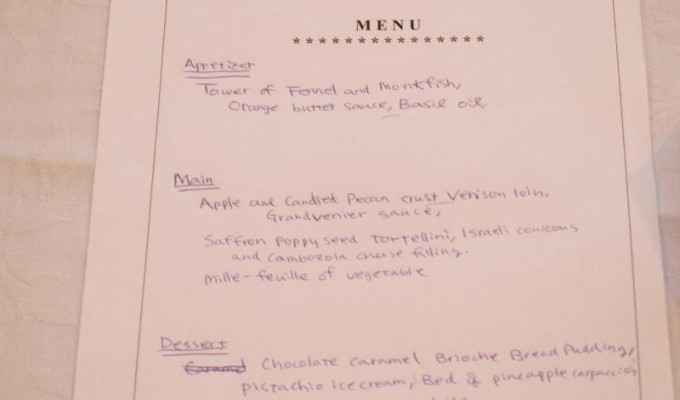 MENU
***************
Appetizer
Tower of Fennel and Monkfish,
Orange butter sauce, Basil oil
Main
Apple and Candied Pecan crust Venison loin,
Grandvenier sauce,
Saffron poppy seed Tortellini, Israeli couscous
and Cambozola cheese filling.
Mille-feuille of vegetable
Dessert
Caramel Chocolate Caramel Brioche Bread Pudding,
Pistachio ice cream, Bed of pineapple carpaccio